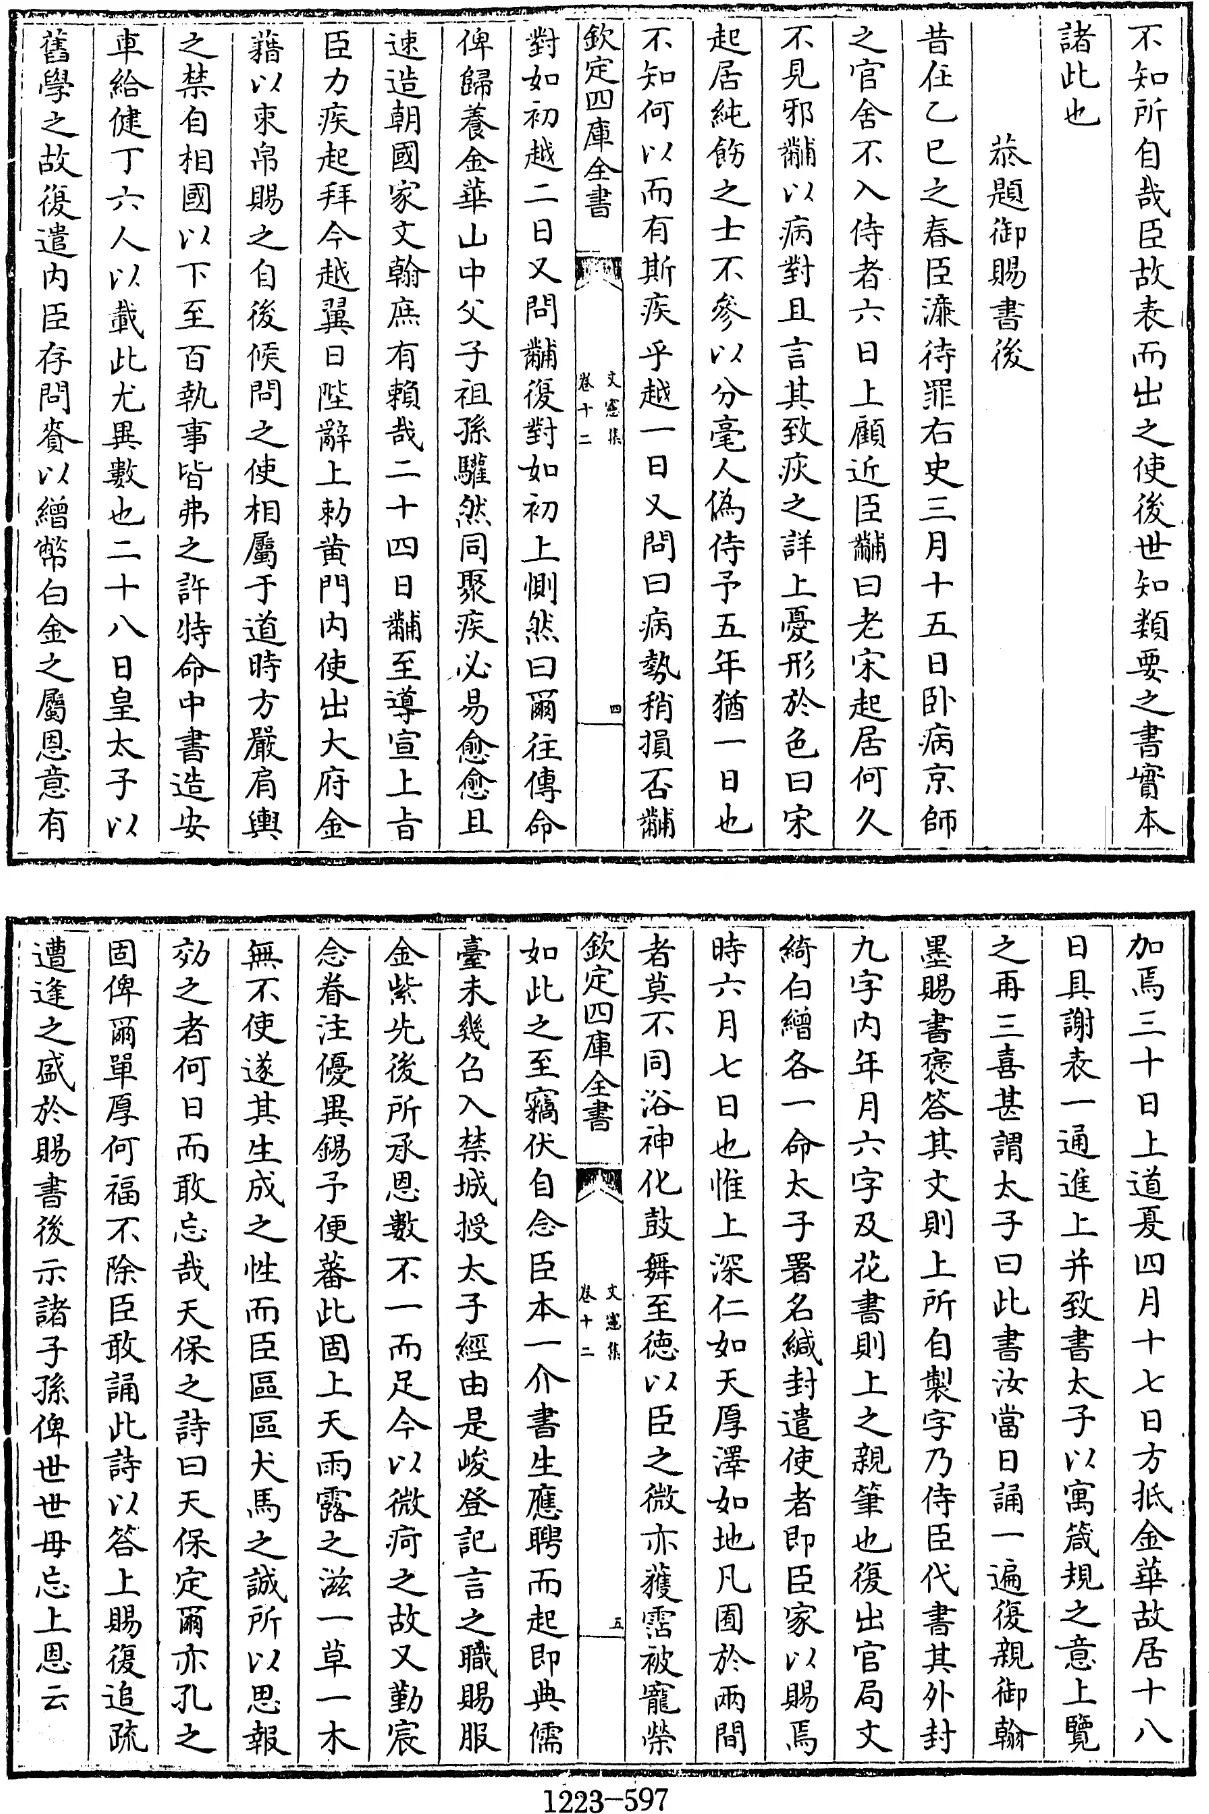 不知所自哉臣故表而出之使後世知類要之書實本
諸此也
恭題御賜書後
昔在乙巳之春臣濂待罪右史三月十五日卧病京師
之官舍不入侍者六日上顧近臣黼曰老宋起居何久
不見邪黼以病對且言其致疾之詳上憂形於色曰宋
起居純飭之士不參以分毫人偽侍予五年猶一日也
不知何以而有斯疾乎越一日又問曰病勢稍損否黼
欽定四庫全書
文憲集
卷十二
四
對如初越二日又問黼復對如初上惻然曰爾往傳命
俾歸養金華山中父子祖孫驩然同聚疾必易愈愈且
速造朝國家文翰庶有賴哉二十四日黼至導宣上旨
臣力疾起拜今越翼日陛辭上勅黄門内使出大府金
藉以束帛賜之自後候問之使相屬于道時方嚴肩輿
之禁自相國以下至百執事皆弗之許特命中書造安
車給健丁六人以載此尤異數也二十八日皇太子以
舊學之故復遣内臣存問賚以繒幣白金之屬恩意有
加焉三十日上道夏四月十七日方抵金華故居十八
日具謝表一通進上并致書太子以寓箴規之意上覽
之再三喜甚謂太子曰此書汝當日誦一遍復親御翰
墨賜書褒答其文則上所自製字乃侍臣代書其外封
九字内年月六字及花書則上之親筆也復出官局文
綺白繒各一命太子署名緘封遣使者即臣家以賜焉
時六月七日也惟上深仁如天厚澤如地凡囿於兩間
者莫不同浴神化鼓舞至德以臣之微亦獲霑被寵榮
欽定四庫全書
文憲集
卷十二
五
如此之至竊伏自念臣本一介書生應聘而起即典儒
臺未幾召入禁城授太子經由是峻登記言之職賜服
金紫先後所承恩數不一而足今以微疴之故又勤宸
念眷注優異錫予便蕃此固上天雨露之滋一草一木
無不使遂其生成之性而臣區區犬馬之誠所以思報
效之者何日而敢忘哉天保之詩曰天保定爾亦孔之
固俾爾單厚何福不除臣敢誦此詩以答上賜復追疏
遭逢之盛於賜書後示諸子孫俾世世毋忘上恩云
1223-597